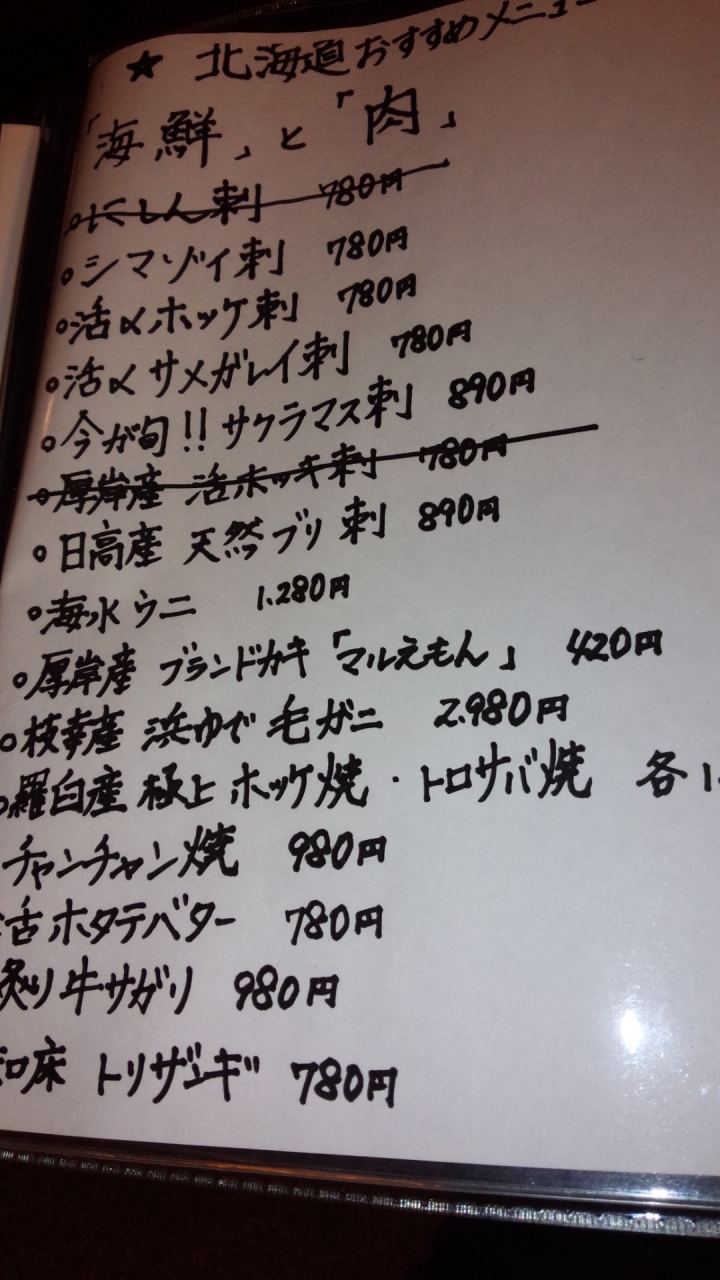 ★ 北海道おすすめメニュー
「海鮮」と「肉」
○にしん刺 780円
○シマゾイ刺 780円
○活〆ホッケ刺 780円
○活〆サメガレイ刺 780円
○今が旬!! サクラマス刺 890円
○厚岸産 活ホッキ刺 780円
○日高産 天然ブリ刺 890円
○海水ウニ 1.280円
○厚岸産 ブランドカキ「マルえもん」 420円
○枝幸産 浜ゆで 毛ガニ 2.980円
○羅臼産 極上ホッケ焼・トロサバ焼 各1.
チャンチャン焼 980円
活ホタテバター 780円
炙り牛サガリ 980円
知床 トリザンギ 780円